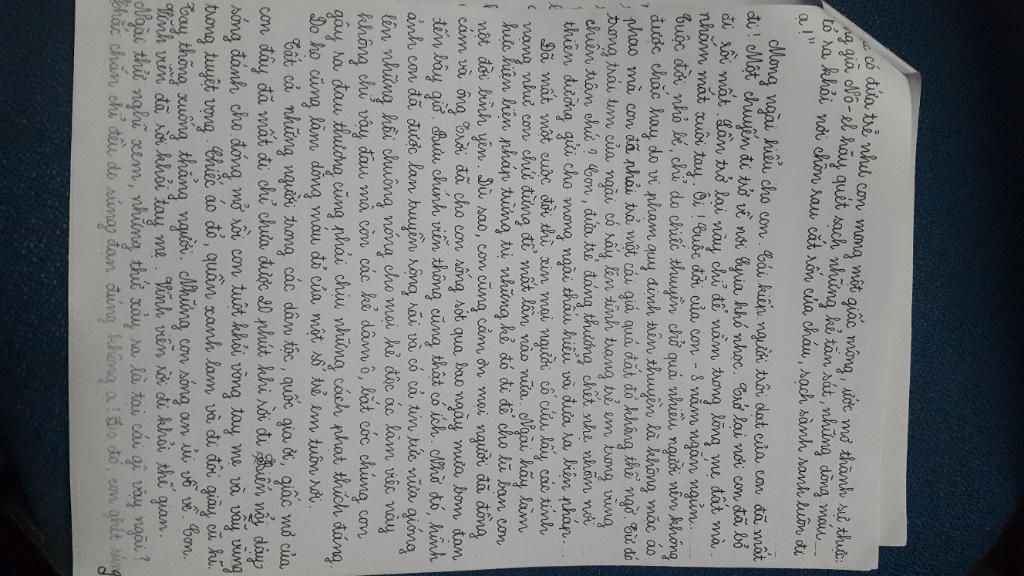 có đứa trẻ như con mong một giấc mộng, ước mơ thành sự thực:
ông già Nô-el hay quét sạch những kẻ tàn sát, những dòng máu
tố ra khỏi nơi chôn rau cắt rốn của cháu, sạch sành sanh luôn đi
ạ!"
Mong ngài hiểu cho con. Cái kiếp người trời đạt của con đã mất
đi! Một chuyến đi trở về nơi Syria khó nhọc. Trở lại nơi con đã bỏ
đi rồi mất. Lần trở lại này chỉ để nằm trong lòng mẹ đất mà
nhắm mắt xuôi tay. Ôi! Cuộc đời của con - 3 năm ngắn ngủi...
Cuộc đời nhỏ bé, chỉ do chiếc thuyền chở quá nhiều người nên không
được chắc hay do vi phạm quy định trên thuyền là không mặc áo
phao mà con đã phải trả một cái giá quá đắt đỏ không thể ngờ. Từ đó
trong trái tim của ngài có nảy lên tình trạng trẻ em trong vùng
chiến tranh chứ? Con, đứa trẻ đáng thương chết nhẹ nhàm nơi
thiên đường gửi cho mong ngài thấu hiểu và đưa ra biện pháp...
Đã mất một cuộc đời thì xin mọi người có cứu lấy cái tính
mạng như con chứ đừng để mất lần nào nữa. Ngài hãy làm
thực hiện biện pháp trừng trị những kẻ đó đi để cho lũ bạn con
một đời bình yên. Dù sao, con cũng cảm ơn mọi người đã đồng
cảm và ông trời đã cho con sống sót qua bao ngày mưa bom đạn
đến bây giờ. Bưu chính viễn thông cũng thật có ích. Nhờ đó, hình
ảnh con đã được lan truyền rộng rãi và có cả tin tức nữa gióng
lên những hồi chuông mong cho mọi kẻ độc ác làm việc này
không chỉ vậy đâu mà con các kẻ dâm ô, bắt cóc chung con
gây ra đau thương cũng phải chịu những cách phạt thích đáng.
Do họ cũng làm dòng máu đỏ của một số trẻ em tuôn rơi.
Tất cả những người trong các dân tộc, quốc gia ơi, giấc mơ của
con đây đã mất đi chỉ chưa được 20 phút khi rời đi. Biển nổi dậy
sóng đánh cho đóng mở rồi con tuột khỏi vòng tay mẹ và vẫy vùng
trong tuyệt vọng. Chiếc áo đỏ, quần xanh lam và đi đôi giày cũ kĩ.
Tay thõng xuống thẳng người. Những con sóng an ủi vỗ về. Con.
Vĩnh viễn đã rời khỏi tay mẹ. Vĩnh viễn rời đi khỏi thế gian.
Ngài thử nghĩ xem, những thứ xảy ra là tại cái gì vậy ngài?
Chắc chắn chỉ đều do súng đạn đúng không ạ! Do đó, con ghét súng